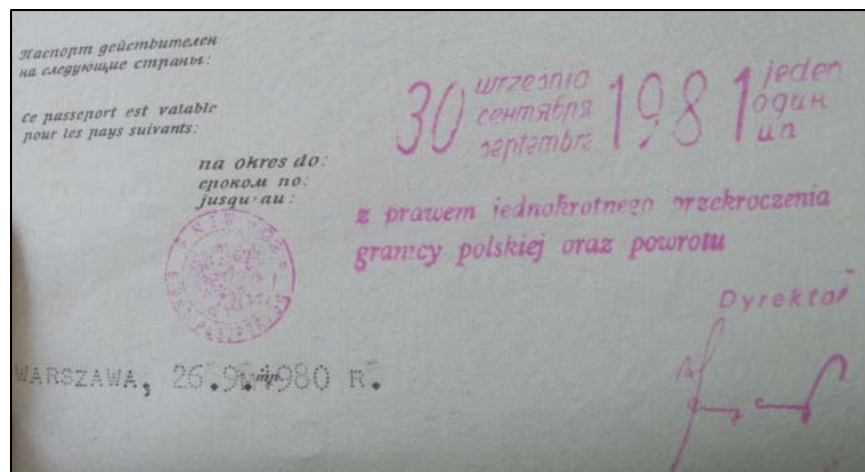 Паспорт действителен
на следующие страны:
Ce passeport est valable
pour les pays suivants:
na okres do:
сроком по:
jusqu'au:
30 września 1981 jeden
сентября один
septembre un
z prawem jednokrotnego przekroczenia
granicy polskiej oraz powrotu
Dyrektor
WARSZAWA, 26.9.1980 R.